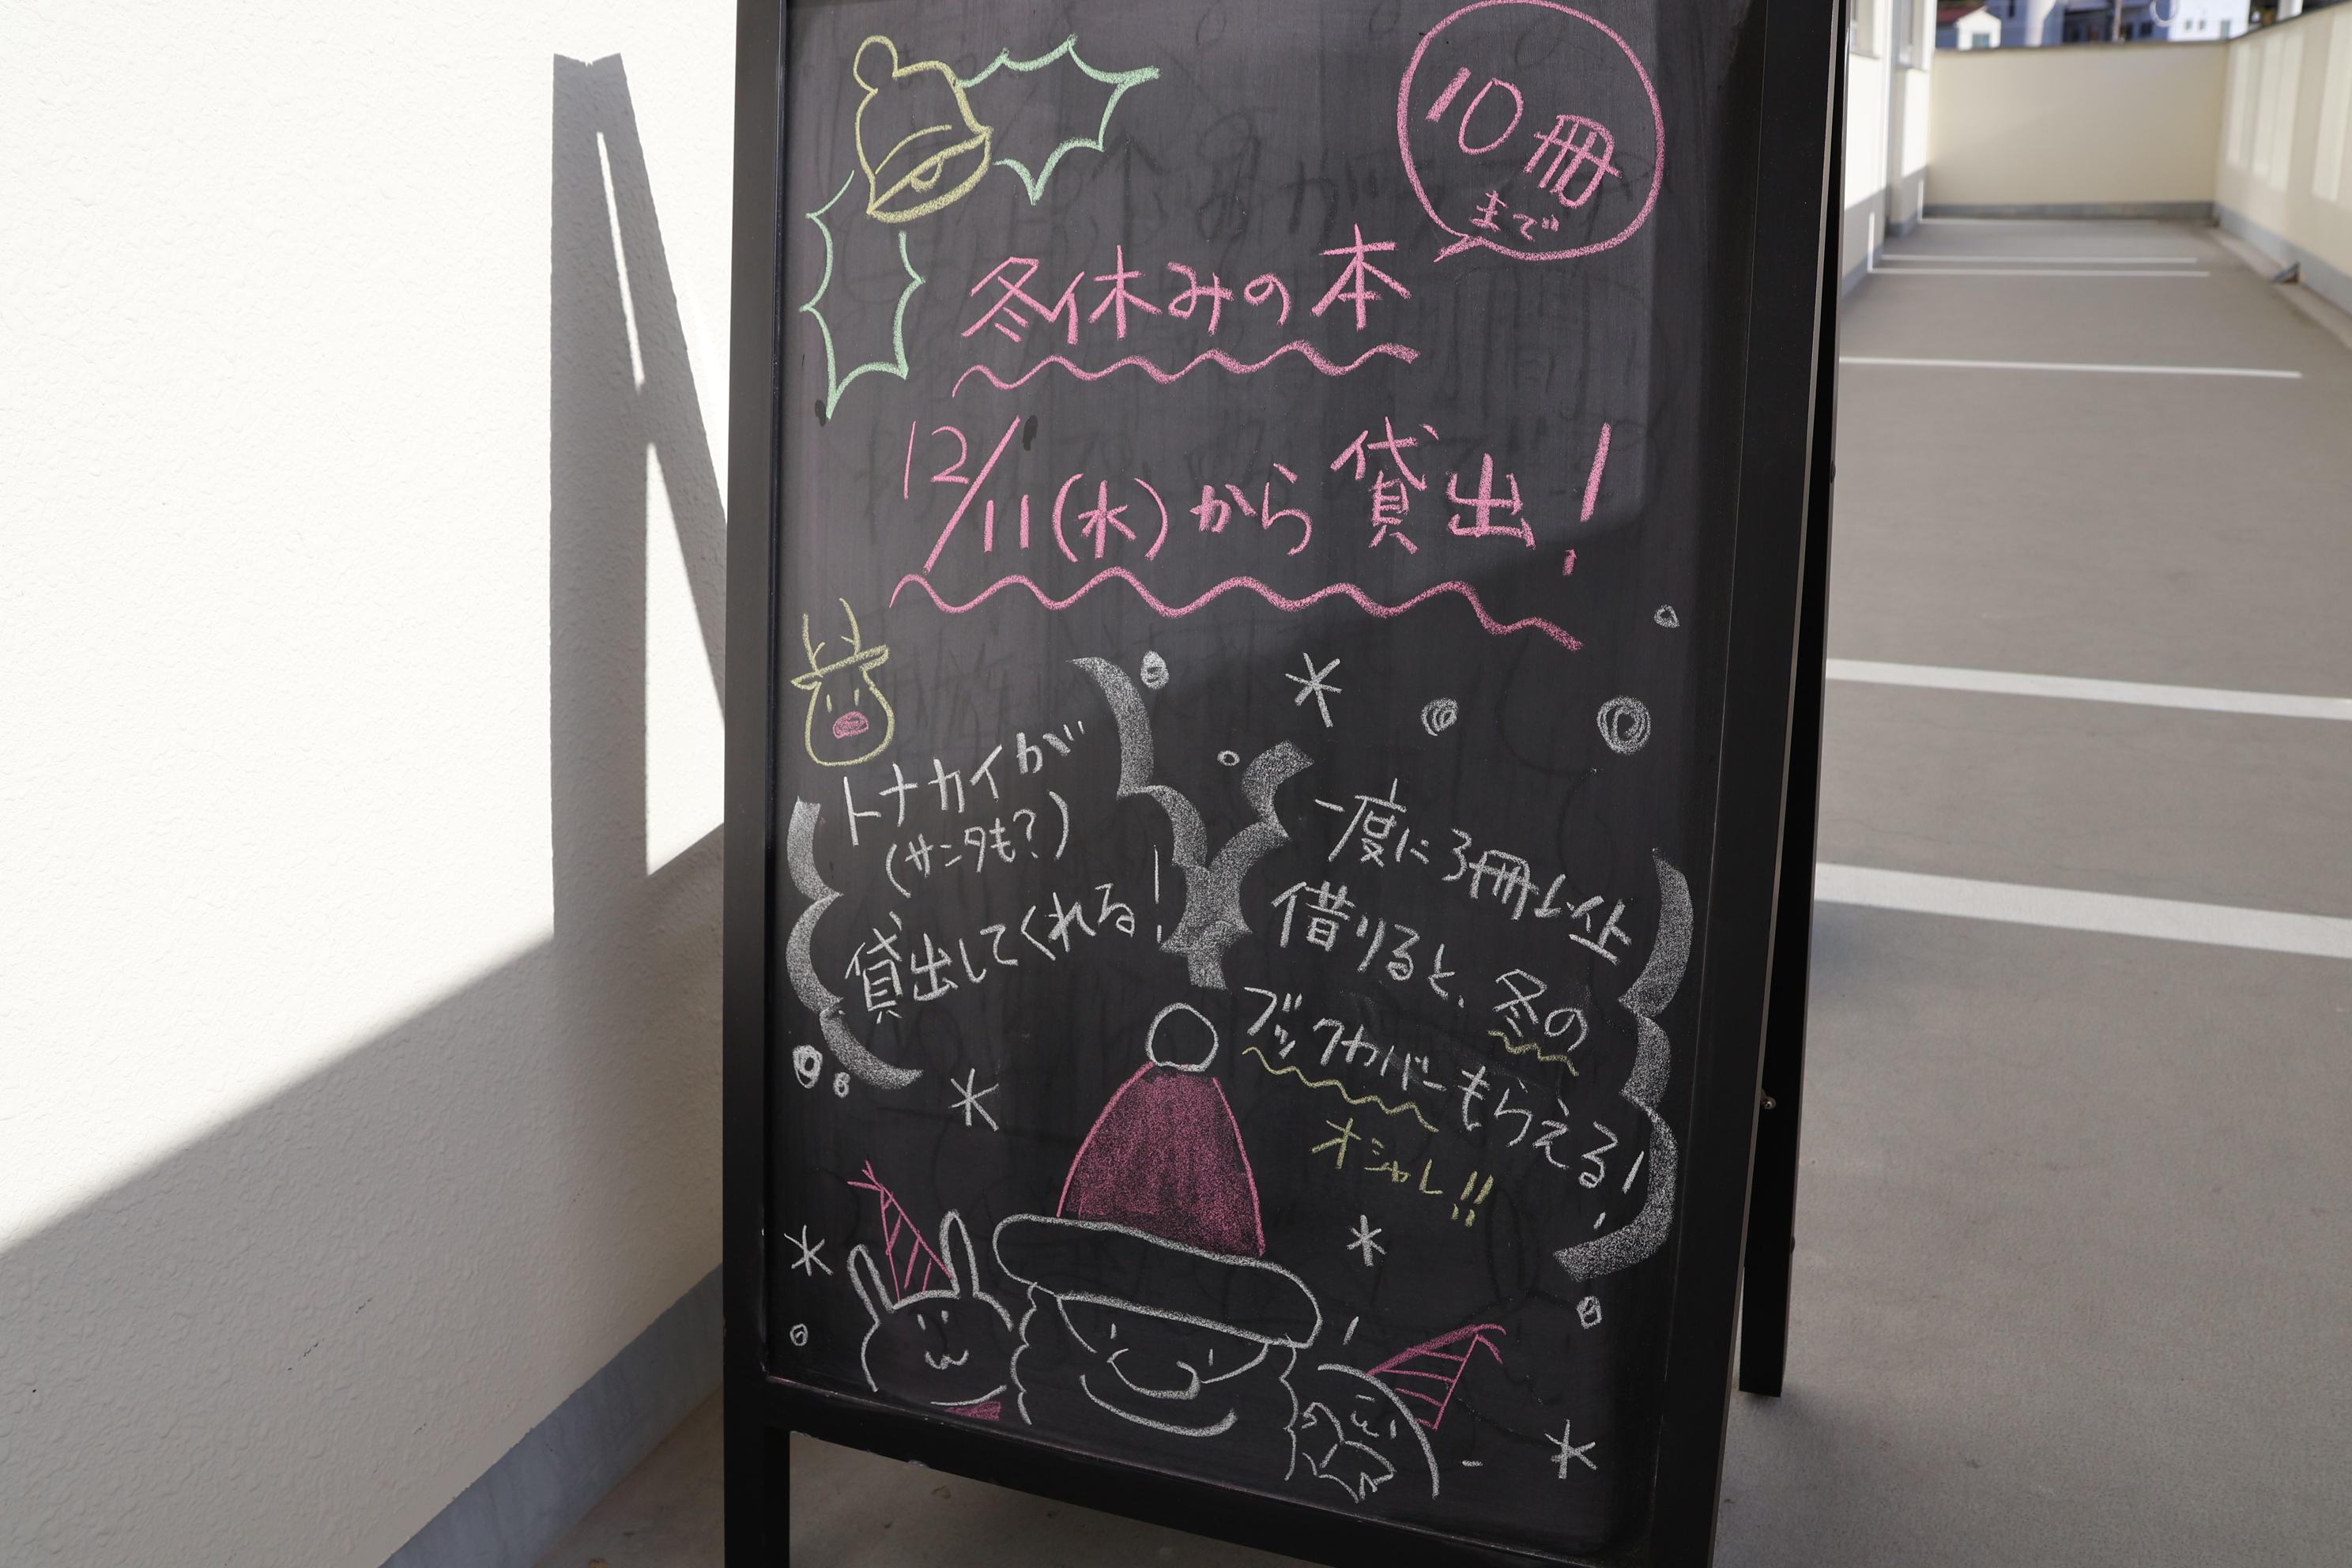 10冊
まで
冬休みの本
12/11(水)から貸出!
トナカイが
(サンタも?)
貸出してくれる!
一度に3冊以上
借りると、冬の
ブックカバーもらえる!
オシャレ!!